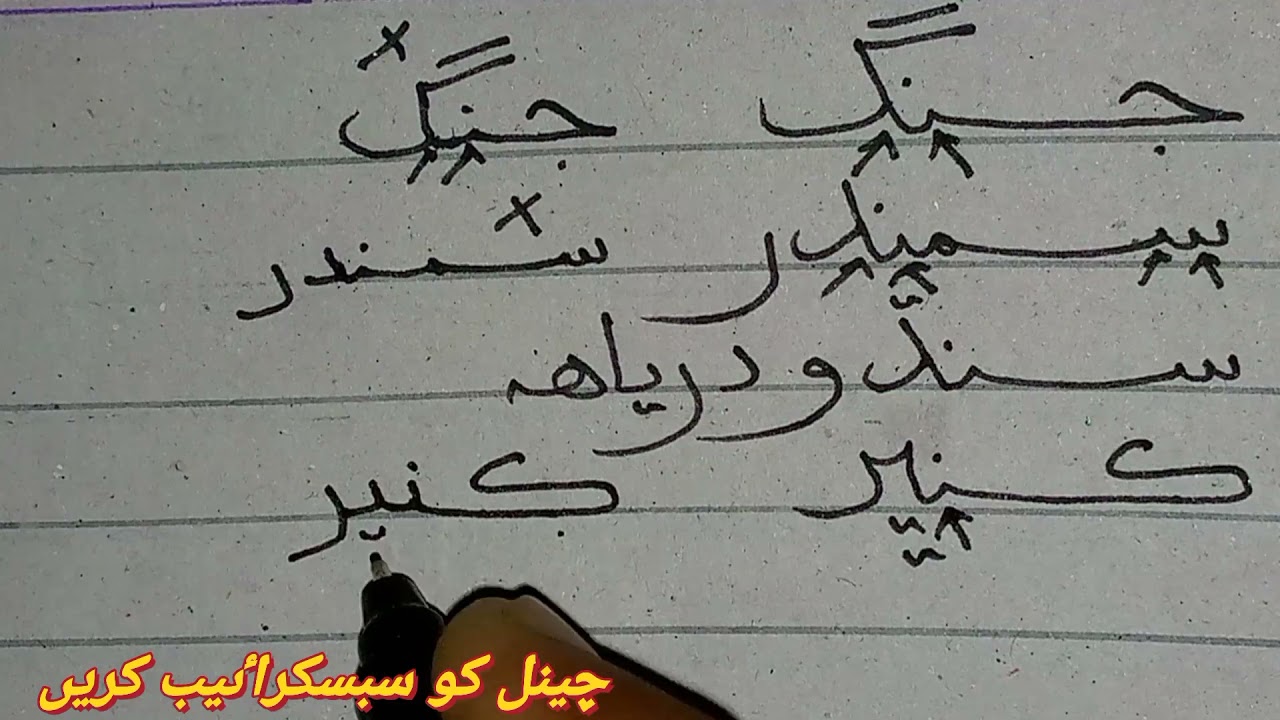 جنگ جنگ
سمندر سمندر
سنڌو درياھ
ڪنير ڪنير
چینل کو سبسکرائیب کریں